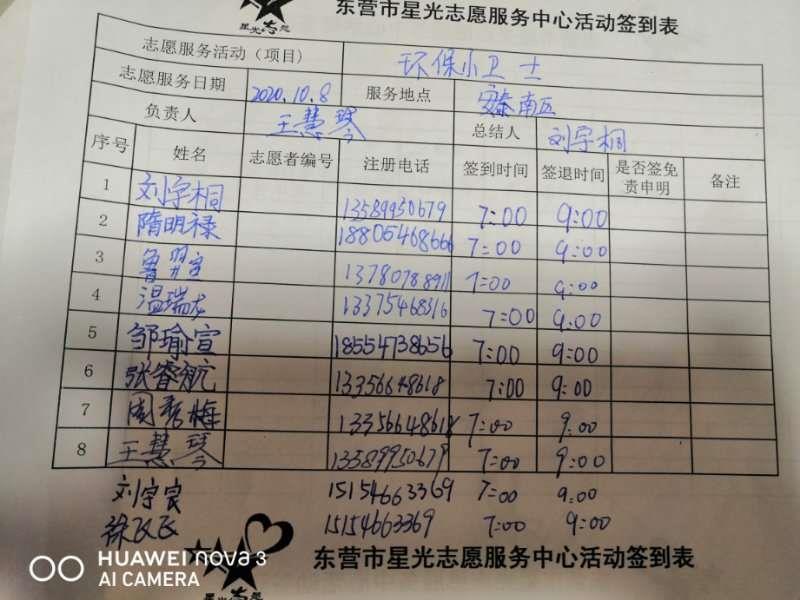 东营市星光志愿服务中心活动签到表
志愿服务活动（项目） 环保小卫士
志愿服务日期 2020.10.8 服务地点 安泰南区
负责人 王慧琴 总结人 刘宇桐
序号 姓名 志愿者编号 注册电话 签到时间 签退时间 是否签免责申明 备注
1 刘宇桐 13589950679 7:00 9:00
2 隋明禄 18805468666 7:00 9:00
3 鲁翌 13780788911 7:00 9:00
4 温瑞龙 13375468316 7:00 9:00
5 邹瑜宣 18554738656 7:00 9:00
6 张睿航 13356648618 7:00 9:00
7 周秀梅 13356648618 7:00 9:00
8 王慧琴 13389950679 7:00 9:00
刘宇宸 15154663369 7:00 9:00
徐 15154663369 7:00 9:00
东营市星光志愿服务中心活动签到表
HUAWEI nova 3
AI CAMERA